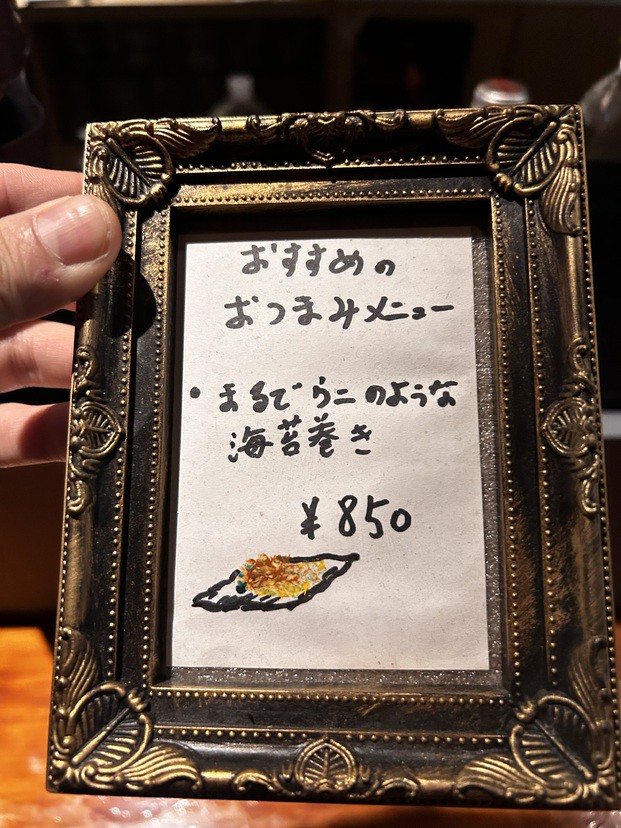 おすすめの
おつまみメニュー
・まるでウニのような
海苔巻き
¥850